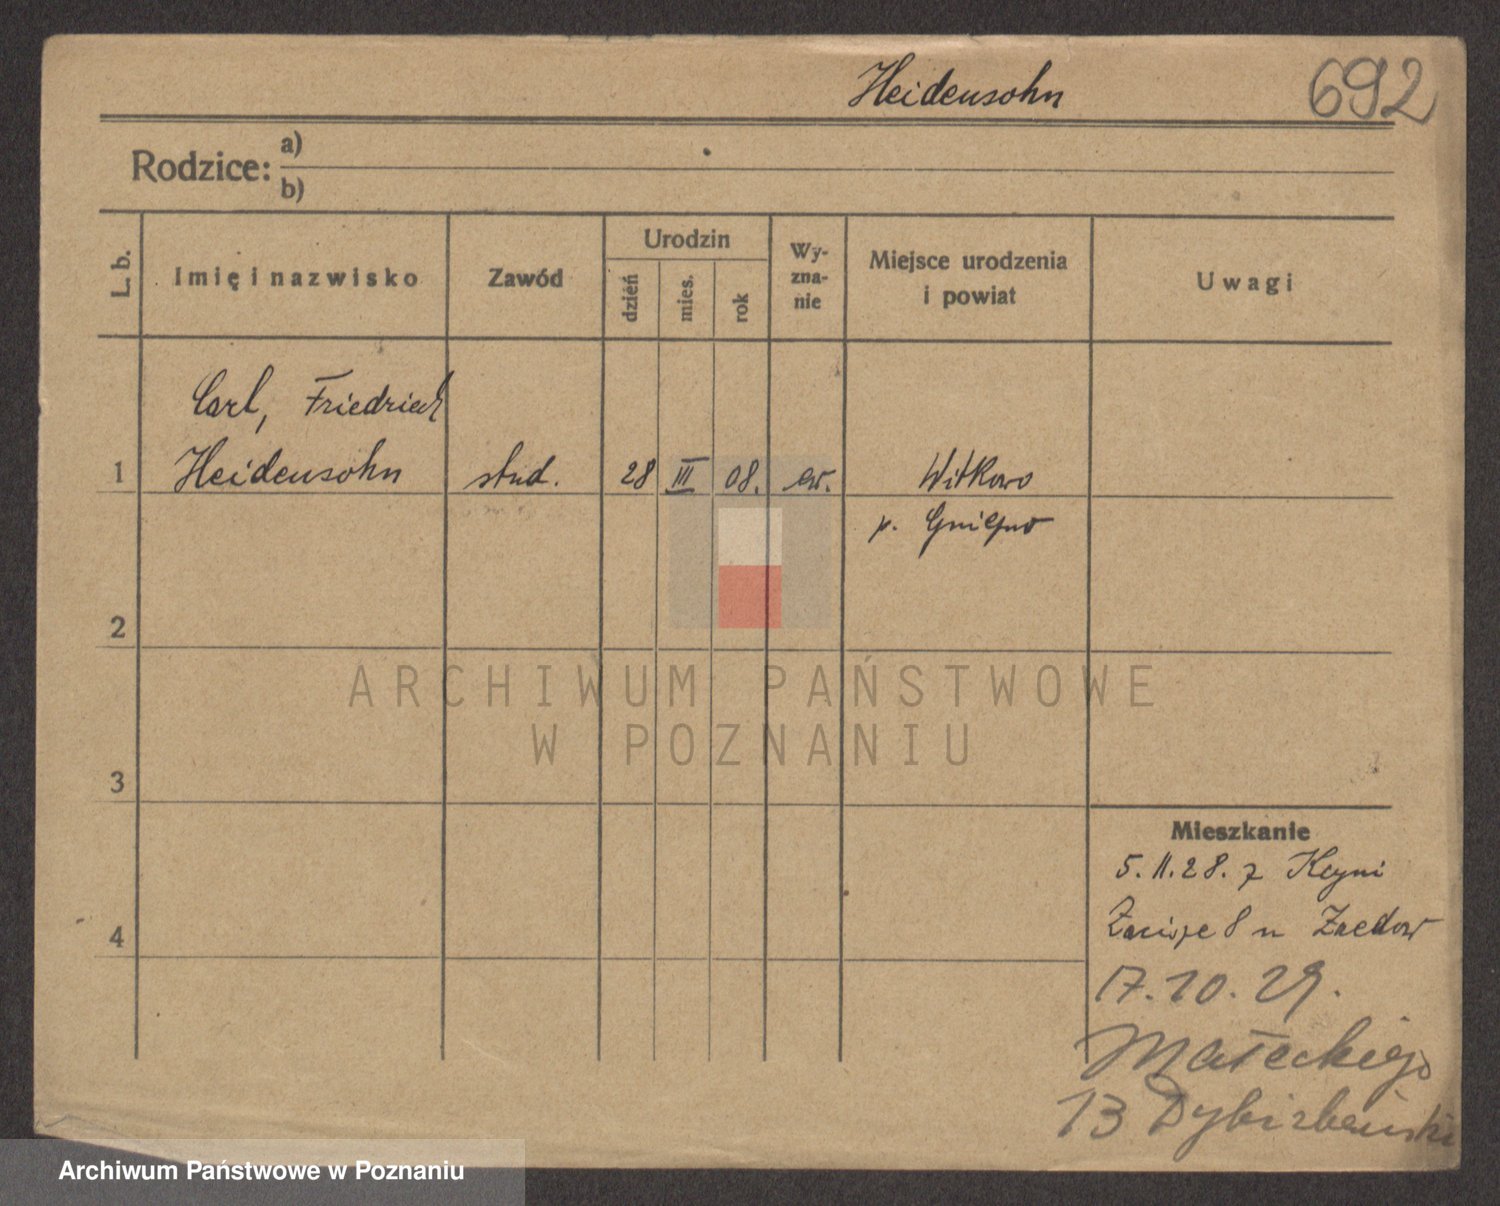 Heidensohn
692
Rodzice: a)
b)
L. b.
Imię i nazwisko
Zawód
Urodzin
dzień
mies.
rok
Wy-
zna-
nie
Miejsce urodzenia
i powiat
Uwagi
Carl, Friedrich
1 Heidensohn stud. 28 III 08. ew. Witkowo
p.
2
3
4
Mieszkanie
5. II. 28. z Kcyni
8
17. 10. 29.
Małeckiego
13
ARCHIWUM PAŃSTWOWE
W POZNANIU
Archiwum Państwowe w Poznaniu